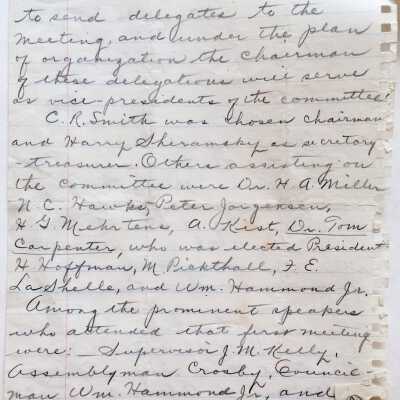 to send delegates to the
meeting, and under the plan
of organization the chairman
of these delegations will serve
as vice-presidents of the committee
C. R. Smith was chosen chairman
and Harry Sheramsky as secretary
-treasurer. Others assisting on
the committee were Dr. H. A. Miller
N. C. Hawks, Peter Jorgensen,
H G Mehrtens, A. Kist, Dr. Tom
Carpenter, who was elected President
H Hoffman, M Pickthall, F. E.
LaShelle, and Wm. Hammond Jr.
Among the prominent speakers
who attended that first meeting
were:- Supervisor J. M. Kelly,
Assemblyman Crosby, Council-
man Wm. Hammond Jr, and